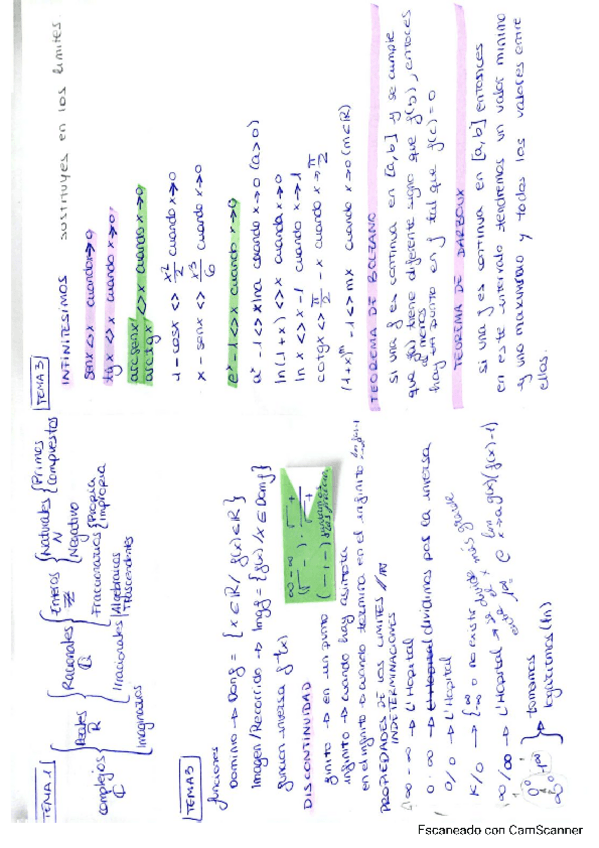 TEMA 1
Complejos C { Reales R { Racionales Q { Enteros Z { Naturales N { Primos
Compuestos
Negativo
Fraccionarios { Propia
impropia
Irracionales { Algebraicos
Trascendentes
Imaginarios
TEMA 3
funciones
Dominio → Dom f = { x ∈ R / f(x) ∈ R }
Imagen/Recorrido → Img f = { f(x) / x ∈ Dom f }
función inversa f⁻¹(x)
DISCONTINUIDAD
finito → en un punto
infinito → cuando hay asíntota
en el infinito → cuando termina en el infinito
PROPIEDADES DE LOS LIMITES
INDETERMINACIONES
∞ - ∞ → L'Hopital
0 · ∞ → dividimos por la inversa
0/0 → L'Hopital
K/0 → { ∞
∞ o no existe
∞/∞ → L'Hopital
tomamos
logaritmos (ln)
∞ - ∞
TEMA 3
INFINITESIMOS sustituyes en los limites
sen x <> x cuando x→0
tg x <> x cuando x→0
arcsen x
arctg x <> x cuando x→0
1 - cos x <> x²/2 cuando x→0
x - sen x <> x³/6 cuando x→0
eˣ - 1 <> x cuando x→0
aˣ - 1 <> x ln a cuando x→0 (a>0)
ln (1+x) <> x cuando x→0
ln x <> x - 1 cuando x→1
cotg x <> π/2 - x cuando x→π/2
(1+x)ᵐ - 1 <> mx cuando x→0 (m∈R)
TEOREMA DE BOLZANO
si una f es continua en [a,b] y se cumple
que f(a) tiene diferente signo que f(b), entonces
al menos
hay un punto en f tal que f(c) = 0
TEOREMA DE DARBOUX
si una f es continua en [a,b] entonces
en este intervalo tendremos un valor minimo
y uno maximo y todos los valores entre
ellos.
Escaneado con CamScanner